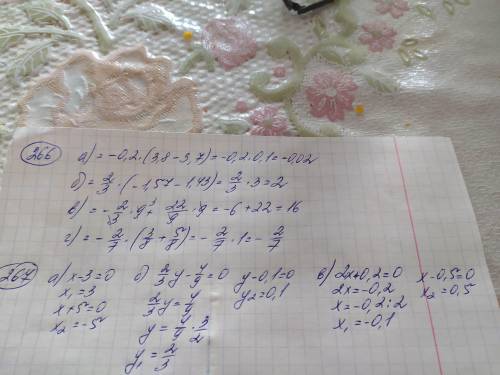 266 а) = -0,2·(3,8-3,7)=-0,2·0,1=-0,02
б) = 2/3·(-1,57-1,43)=2/3·3=2
в) = -2/3·9+22/9·9=-6+22=16
г) = -2/7·(3/8+5/8)=-2/7·1=-2/7
267 а) x-3=0
x₁=3
x+5=0
x₂=-5
б) 2/3y-4/9=0
2/3y=4/9
y=4/9·3/2
y₁=2/3
y-0,1=0
y₂=0,1
в) 2x+0,2=0
2x=-0,2
x=-0,2:2
x₁=-0,1
x-0,5=0
x₂=0,5